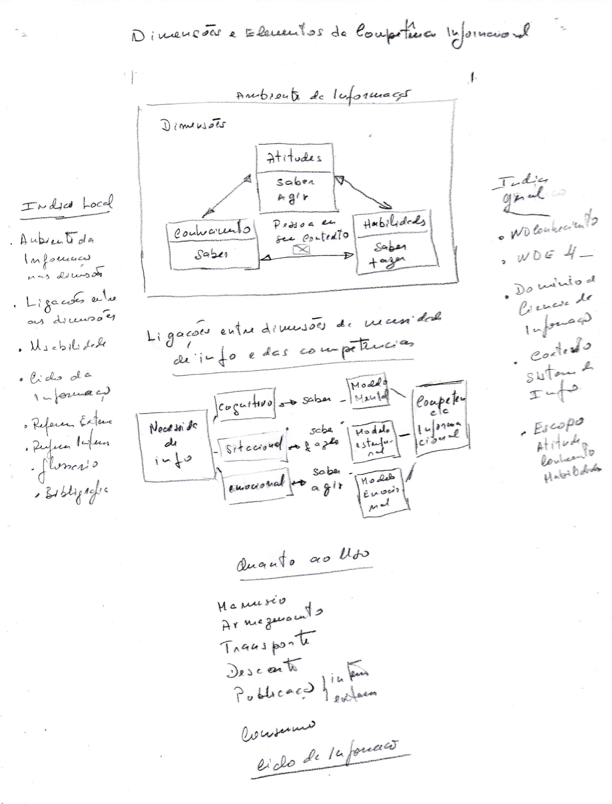 Dimensões e Elementos da Competência Informacional
Ambiente de Informação
Dimensões
Atitudes
Saber
Agir
Conhecimento
Saber
Pessoa em
seu Contexto
Habilidades
Saber
fazer
Indice Local
• Ambiente da
Informação
nas dimensões
• Ligações entre
as dimensões
• Usabilidade
• Ciclo da
Informação
• Referen Extern
• Referen Intern
• glossário
• Bibliografia
Indice
geral
• WDConhecimento
• WDE 4
• Domínio da
Ciência da
Informação
• Contexto
Sistema de
Info
• Escopo
Atitude
Conhecimento
Habilidades
Ligações entre dimensões de necessidade
de info e das competências
Necessida
de
info
cognitivo
saber
Modelo
Mental
situacional
saber
Modelo
emocional
saber
agir
Modelo
Emocio
nal
Competen
cia
Informa
cional
Quanto ao Uso
Manuseio
Armazenamento
Transporte
Descarte
Publicação
intern
extern
Consumo
Ciclo de Informação